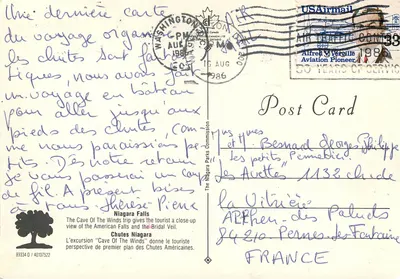 Une dernière carte
du voyage organ
les chutes sont fa
tiques, nous avons fait
un voyage en bateau
pour aller jusqu'aux
pieds des chutes, com
me nous paraissions pe
tits. Dès notre retour
je vous passerai un coup
de fil. A présent bises
à tous. Thérèse-Pierre
Niagara Falls
The Cave Of The Winds trip gives the tourist a close-up
view of the American Falls and the Bridal Veil.
Chutes Niagara
L'excursion "Cave Of The Winds" donne le touriste
perspective de premier plan des Chutes Américaines.
The Niagara Parks Commission
WASHINGTON
PM
AUG
1986
AIR
16 AUG
1986
USAirmail
Alfred V. Verville
Aviation Pioneer
33
AIR TRAFFIC CONT
50 YEARS OF SERVICE
Post Card
Bernard Georges Philippe
Les petits
Les Avettes 1132 ch de
la Vitrière
Althen des Paluds
84210 Pernes les Fontaines
FRANCE